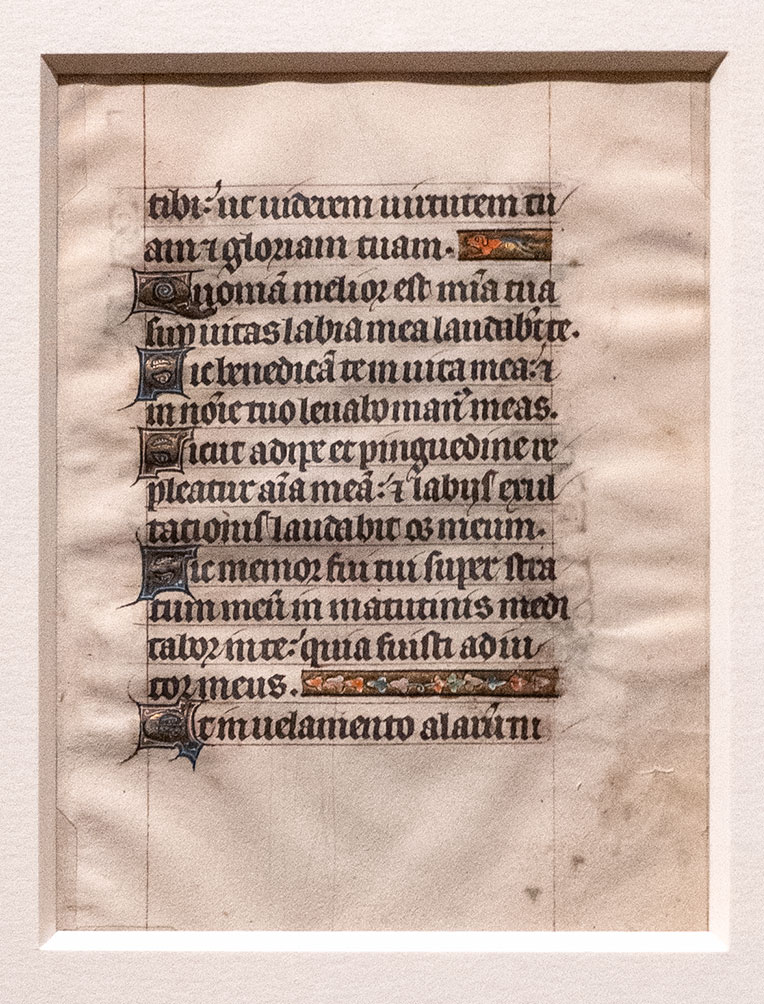 tibi: ut uiderem uirtutem tu
am ⁊ gloriam tuam.
Quoniā melior est mīa tua
sup uitas labia mea laudabūt te.
Sic benedicā te in uita mea: ⁊
in nōīe tuo leuabo man᷒ meas.
Sicut adipe et pinguedine re
pleatur aīa meā: ⁊ labijs exul
tationis laudabit os meum.
Sic memor fui tui super stra
tum meū in matutinis medi
tabor in te: quia fuisti adiu
tor meus.
Et in uelamento alarū tu